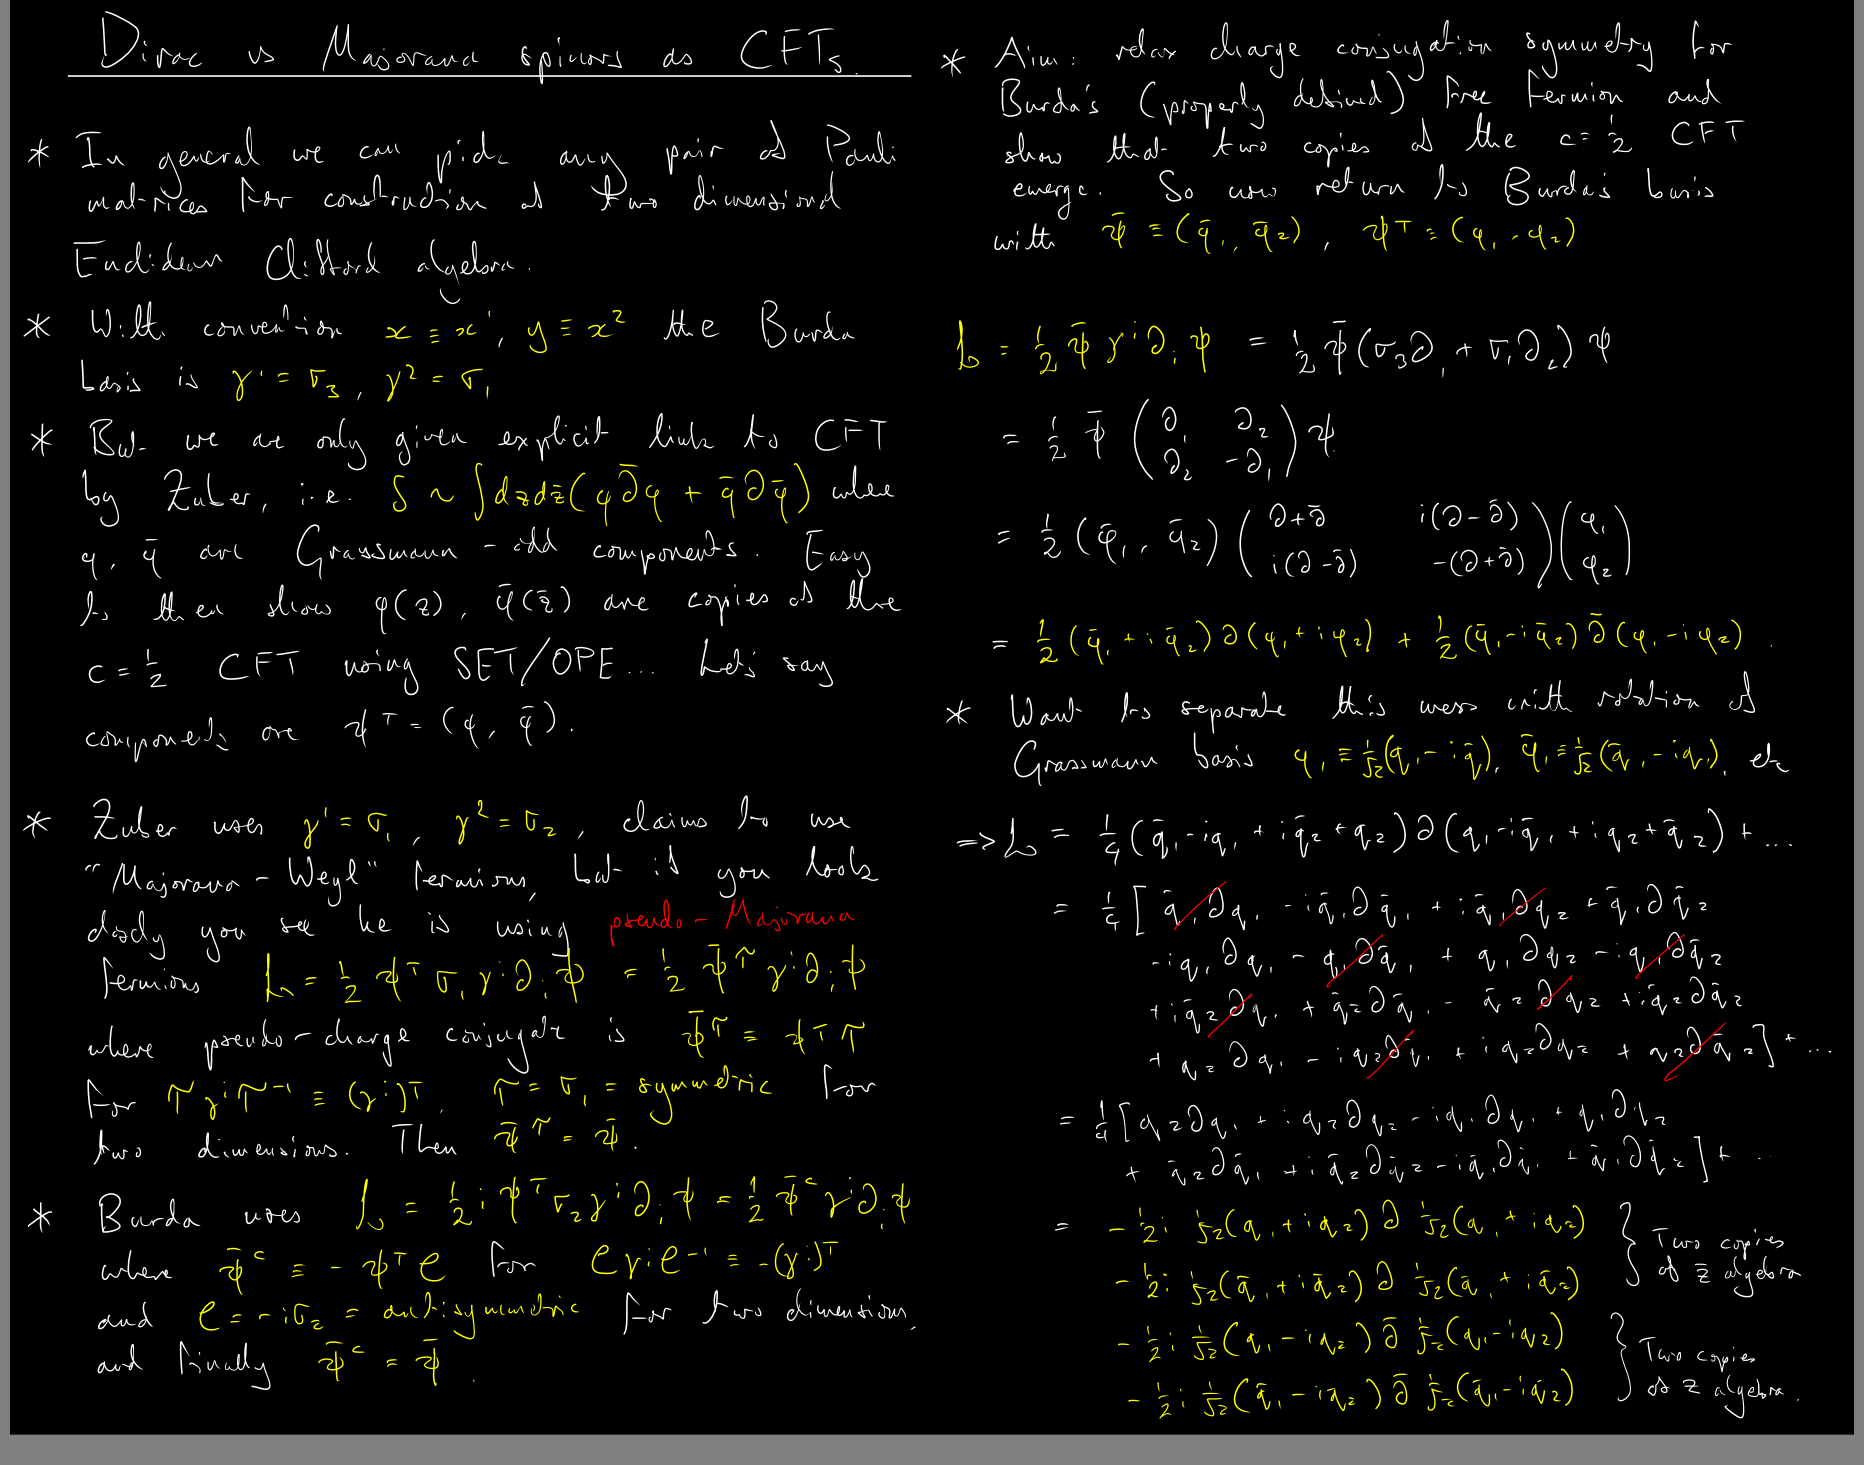 Dirac vs Majorana spinors as CFTs.
* In general we can pick any pair of Pauli
matrices for construction of two dimensional
Euclidean Clifford algebra.
* With convention x ≡ x¹, y ≡ x² the Burda
basis is γ¹ = σ₃, γ² = σ₁
* But we are only given explicit link to CFT
by Zuber, i.e. S ~ ∫dzdz̄(φ∂̄φ + φ̄∂φ̄) where
φ, φ̄ are Grassmann-odd components. Easy
to then show φ(z), φ̄(z̄) are copies of the
c = ½ CFT using SET/OPE... Let's say
components are ψᵀ = (φ, φ̄).
* Zuber uses γ¹ = σ₁, γ² = σ₂, claims to use
"Majorana-Weyl" fermions, but if you look
closely you see he is using pseudo-Majorana
fermions L = ½ ψᵀ σ₁ γⁱ ∂ᵢ ψ = ½ ψ̄^𝒯 γⁱ ∂ᵢ ψ
where pseudo-charge conjugate is ψ̄^𝒯 ≡ ψᵀ 𝒯
for 𝒯 γⁱ 𝒯⁻¹ ≡ (γⁱ)ᵀ, 𝒯 = σ₁ = symmetric for
two dimensions. Then ψ̄^𝒯 = ψ̄.
* Burda uses L = ½ i ψᵀ σ₂ γⁱ ∂ᵢ ψ = ½ ψ̄ᶜ γⁱ ∂ᵢ ψ
where ψ̄ᶜ ≡ - ψᵀ C for C γⁱ C⁻¹ ≡ -(γⁱ)ᵀ
and C = -iσ₂ = antisymmetric for two dimensions,
and finally ψ̄ᶜ = ψ̄.
* Aim: relax charge conjugation symmetry for
Burda's (properly defined) free fermion and
show that two copies of the c = ½ CFT
emerge. So now return to Burda's basis
with ψ̄ ≡ (φ̄₁, φ̄₂), ψᵀ ≡ (φ₁, φ₂)
L = ½ ψ̄ γⁱ ∂ᵢ ψ = ½ ψ̄ (σ₃∂₁ + σ₁∂₂) ψ
= ½ ψ̄ ( ∂₁ ∂₂
∂₂ -∂₁ ) ψ
= ½ (φ̄₁, φ̄₂) ( ∂+∂̄ i(∂-∂̄)
i(∂-∂̄) -(∂+∂̄) ) ( φ₁
φ₂ )
= ½ (φ̄₁ + iφ̄₂) ∂ (φ₁ + iφ₂) + ½ (φ̄₁ - iφ̄₂) ∂̄ (φ₁ - iφ₂).
* Want to separate this mess with rotation of
Grassmann basis φ₁ ≡ 1/√2 (q₁ - iq̄₁), φ̄₁ ≡ 1/√2 (q̄₁ - iq₁), etc
=> L = ¼ (q̄₁ - iq₁ + iq̄₂ + q₂) ∂ (q₁ - iq̄₁ + iq₂ + q̄₂) + ...
= ¼ [ q̄₁∂q₁ - iq̄₁∂q̄₁ + iq̄₁∂q₂ + q̄₁∂q̄₂
- iq₁∂q₁ - q₁∂q̄₁ + q₁∂q₂ - iq₁∂q̄₂
+ iq̄₂∂q₁ + q̄₂∂q̄₁ - q̄₂∂q₂ + iq̄₂∂q̄₂
+ q₂∂q₁ - iq₂∂q̄₁ + iq₂∂q₂ + q₂∂q̄₂ ] + ...
= ¼ [ q₂∂q₁ + iq₂∂q₂ - iq₁∂q₁ + q₁∂q₂
+ q̄₂∂q̄₁ + iq̄₂∂q̄₂ - iq̄₁∂q̄₁ + q̄₁∂q̄₂ ] + ...
= - ½ i 1/√2 (q₁ + iq₂) ∂ 1/√2 (q₁ + iq₂)
- ½ i 1/√2 (q̄₁ + iq̄₂) ∂ 1/√2 (q̄₁ + iq̄₂)
} Two copies
of z̄ algebra
- ½ i 1/√2 (q₁ - iq₂) ∂̄ 1/√2 (q₁ - iq₂)
- ½ i 1/√2 (q̄₁ - iq̄₂) ∂̄ 1/√2 (q̄₁ - iq̄₂)
} Two copies
of z algebra.